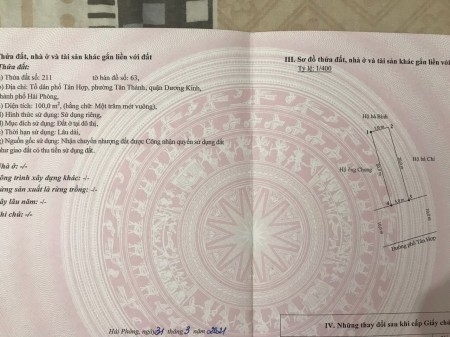 Thửa đất, nhà ở và tài sản khác gắn liền với đất
Thửa đất:
) Thửa đất số: 211 tờ bản đồ số: 63,
) Địa chỉ: Tổ dân phố Tân Hợp, phường Tân Thành, quận Dương Kinh,
thành phố Hải Phòng,
) Diện tích: 100,0 m², (bằng chữ: Một trăm mét vuông),
) Hình thức sử dụng: Sử dụng riêng,
) Mục đích sử dụng: Đất ở tại đô thị,
) Thời hạn sử dụng: Lâu dài,
) Nguồn gốc sử dụng: Nhận chuyển nhượng đất được Công nhận quyền sử dụng đất
như giao đất có thu tiền sử dụng đất.
Nhà ở: -/-
ông trình xây dựng khác: -/-
ừng sản xuất là rừng trồng: -/-
ây lâu năm: -/-
hi chú: -/-
Hải Phòng, ngày 31 tháng 3 năm 2021
III. Sơ đồ thửa đất, nhà ở và tài sản khác gắn liền với
Tỷ lệ: 1/400
Hộ bà Bình
Hộ ông Chang
Hộ bà Chi
Đường phố Tân Hợp
IV. Những thay đổi sau khi cấp Giấy chứ